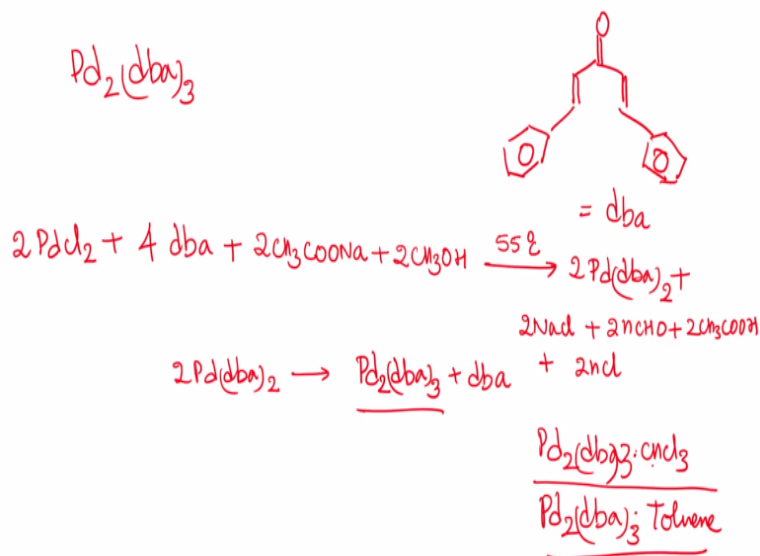 Pd₂(dba)₃
O
= dba
2PdCl₂ + 4 dba + 2CH₃COONa + 2CH₃OH 55℃ → 2Pd(dba)₂ +
2NaCl + 2HCHO + 2CH₃COOH
+ 2HCl
2Pd(dba)₂ → Pd₂(dba)₃ + dba
Pd₂(dba)₃·CHCl₃
Pd₂(dba)₃·Toluene